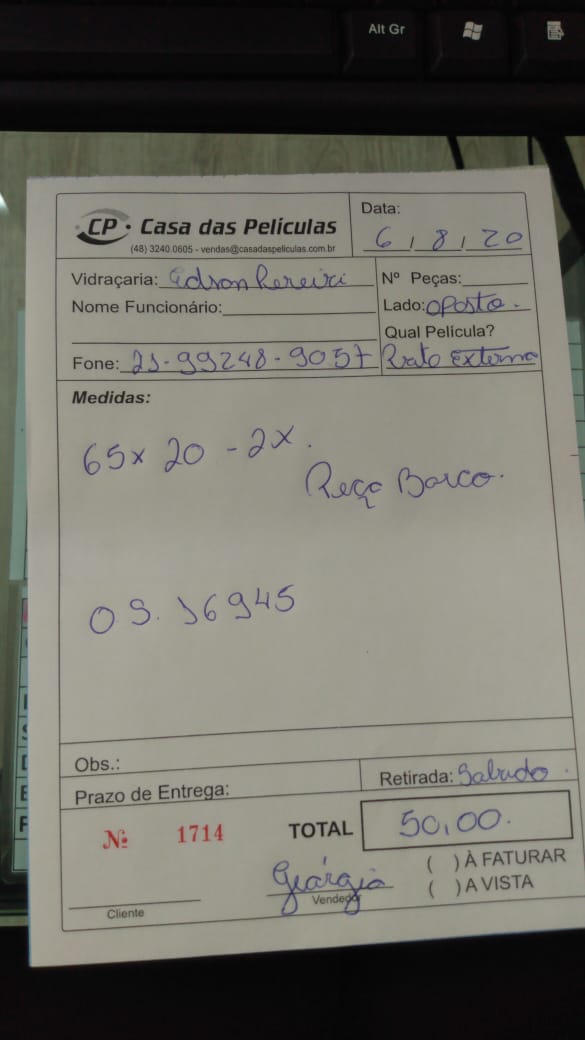 Alt Gr
CP • Casa das Películas
(48) 3240.0605 - vendas@casadaspeliculas.com.br
Data:
6 / 8 / 20
Vidraçaria: Edson Pereira
Nº Peças:
Nome Funcionário:
Lado: oposto.
Qual Película?
Fone: 21-99248-9057
Prata Externo
Medidas:
65x20 - 2x.
Peça Barco.
O S. 16945
Obs.:
Prazo de Entrega:
Retirada: Sabado.
Nº 1714
TOTAL 50,00.
( ) À FATURAR
( ) A VISTA
Geórgia
Cliente
Vendedor